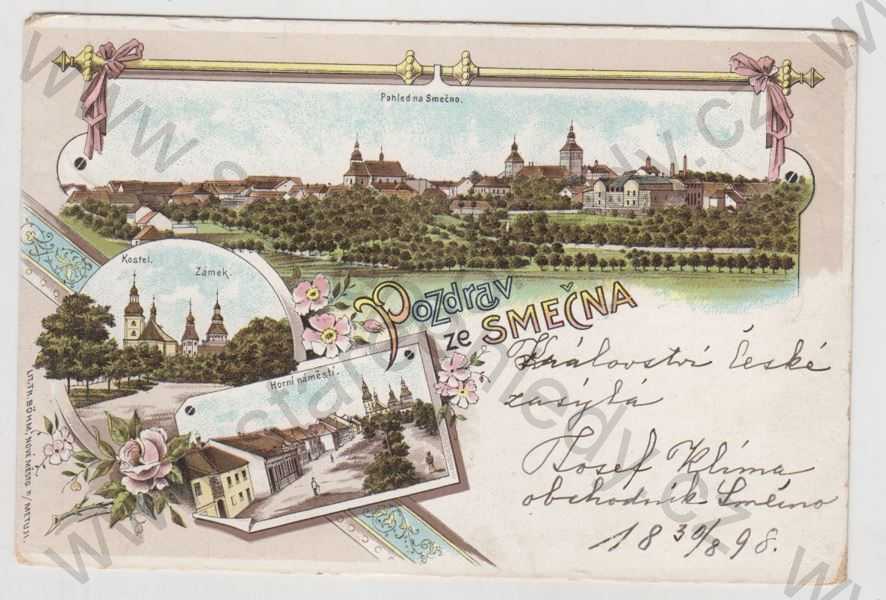 Pohled na Smečno.
Kostel.
Zámek.
Pozdrav
ze SMEČNA
Horní náměstí.
Království české
zasýlá
Josef Klíma
obchodník Smečno
18 30/8 98.
LIT. TR. BÖHM, NOVÉ MĚSTO n/ METUJÍ.
www.stare-pohledy.cz